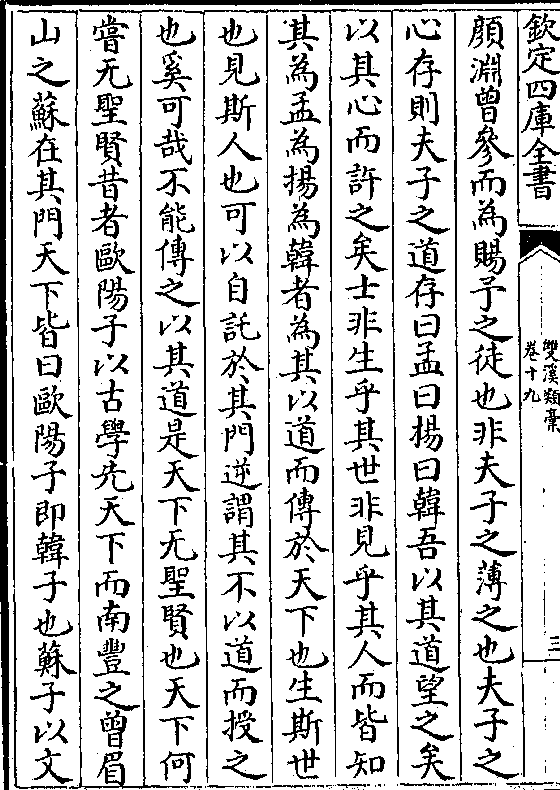 欽定四庫全書
雙溪類稾
卷十九
三
顔淵曾參而為賜予之徒也非夫子之薄之也夫子之
心存則夫子之道存曰孟曰揚曰韓吾以其道望之矣
以其心而許之矣士非生乎其世非見乎其人而皆知
其為孟為揚為韓者為其以道而傳於天下也生斯世
也見斯人也可以自託於其門逆謂其不以道而授之
也奚可哉不能傳之以其道是天下无聖賢也天下何
嘗无聖賢昔者歐陽子以古學先天下而南豐之曾眉
山之蘇在其門天下皆曰歐陽子即韓子也蘇子以文